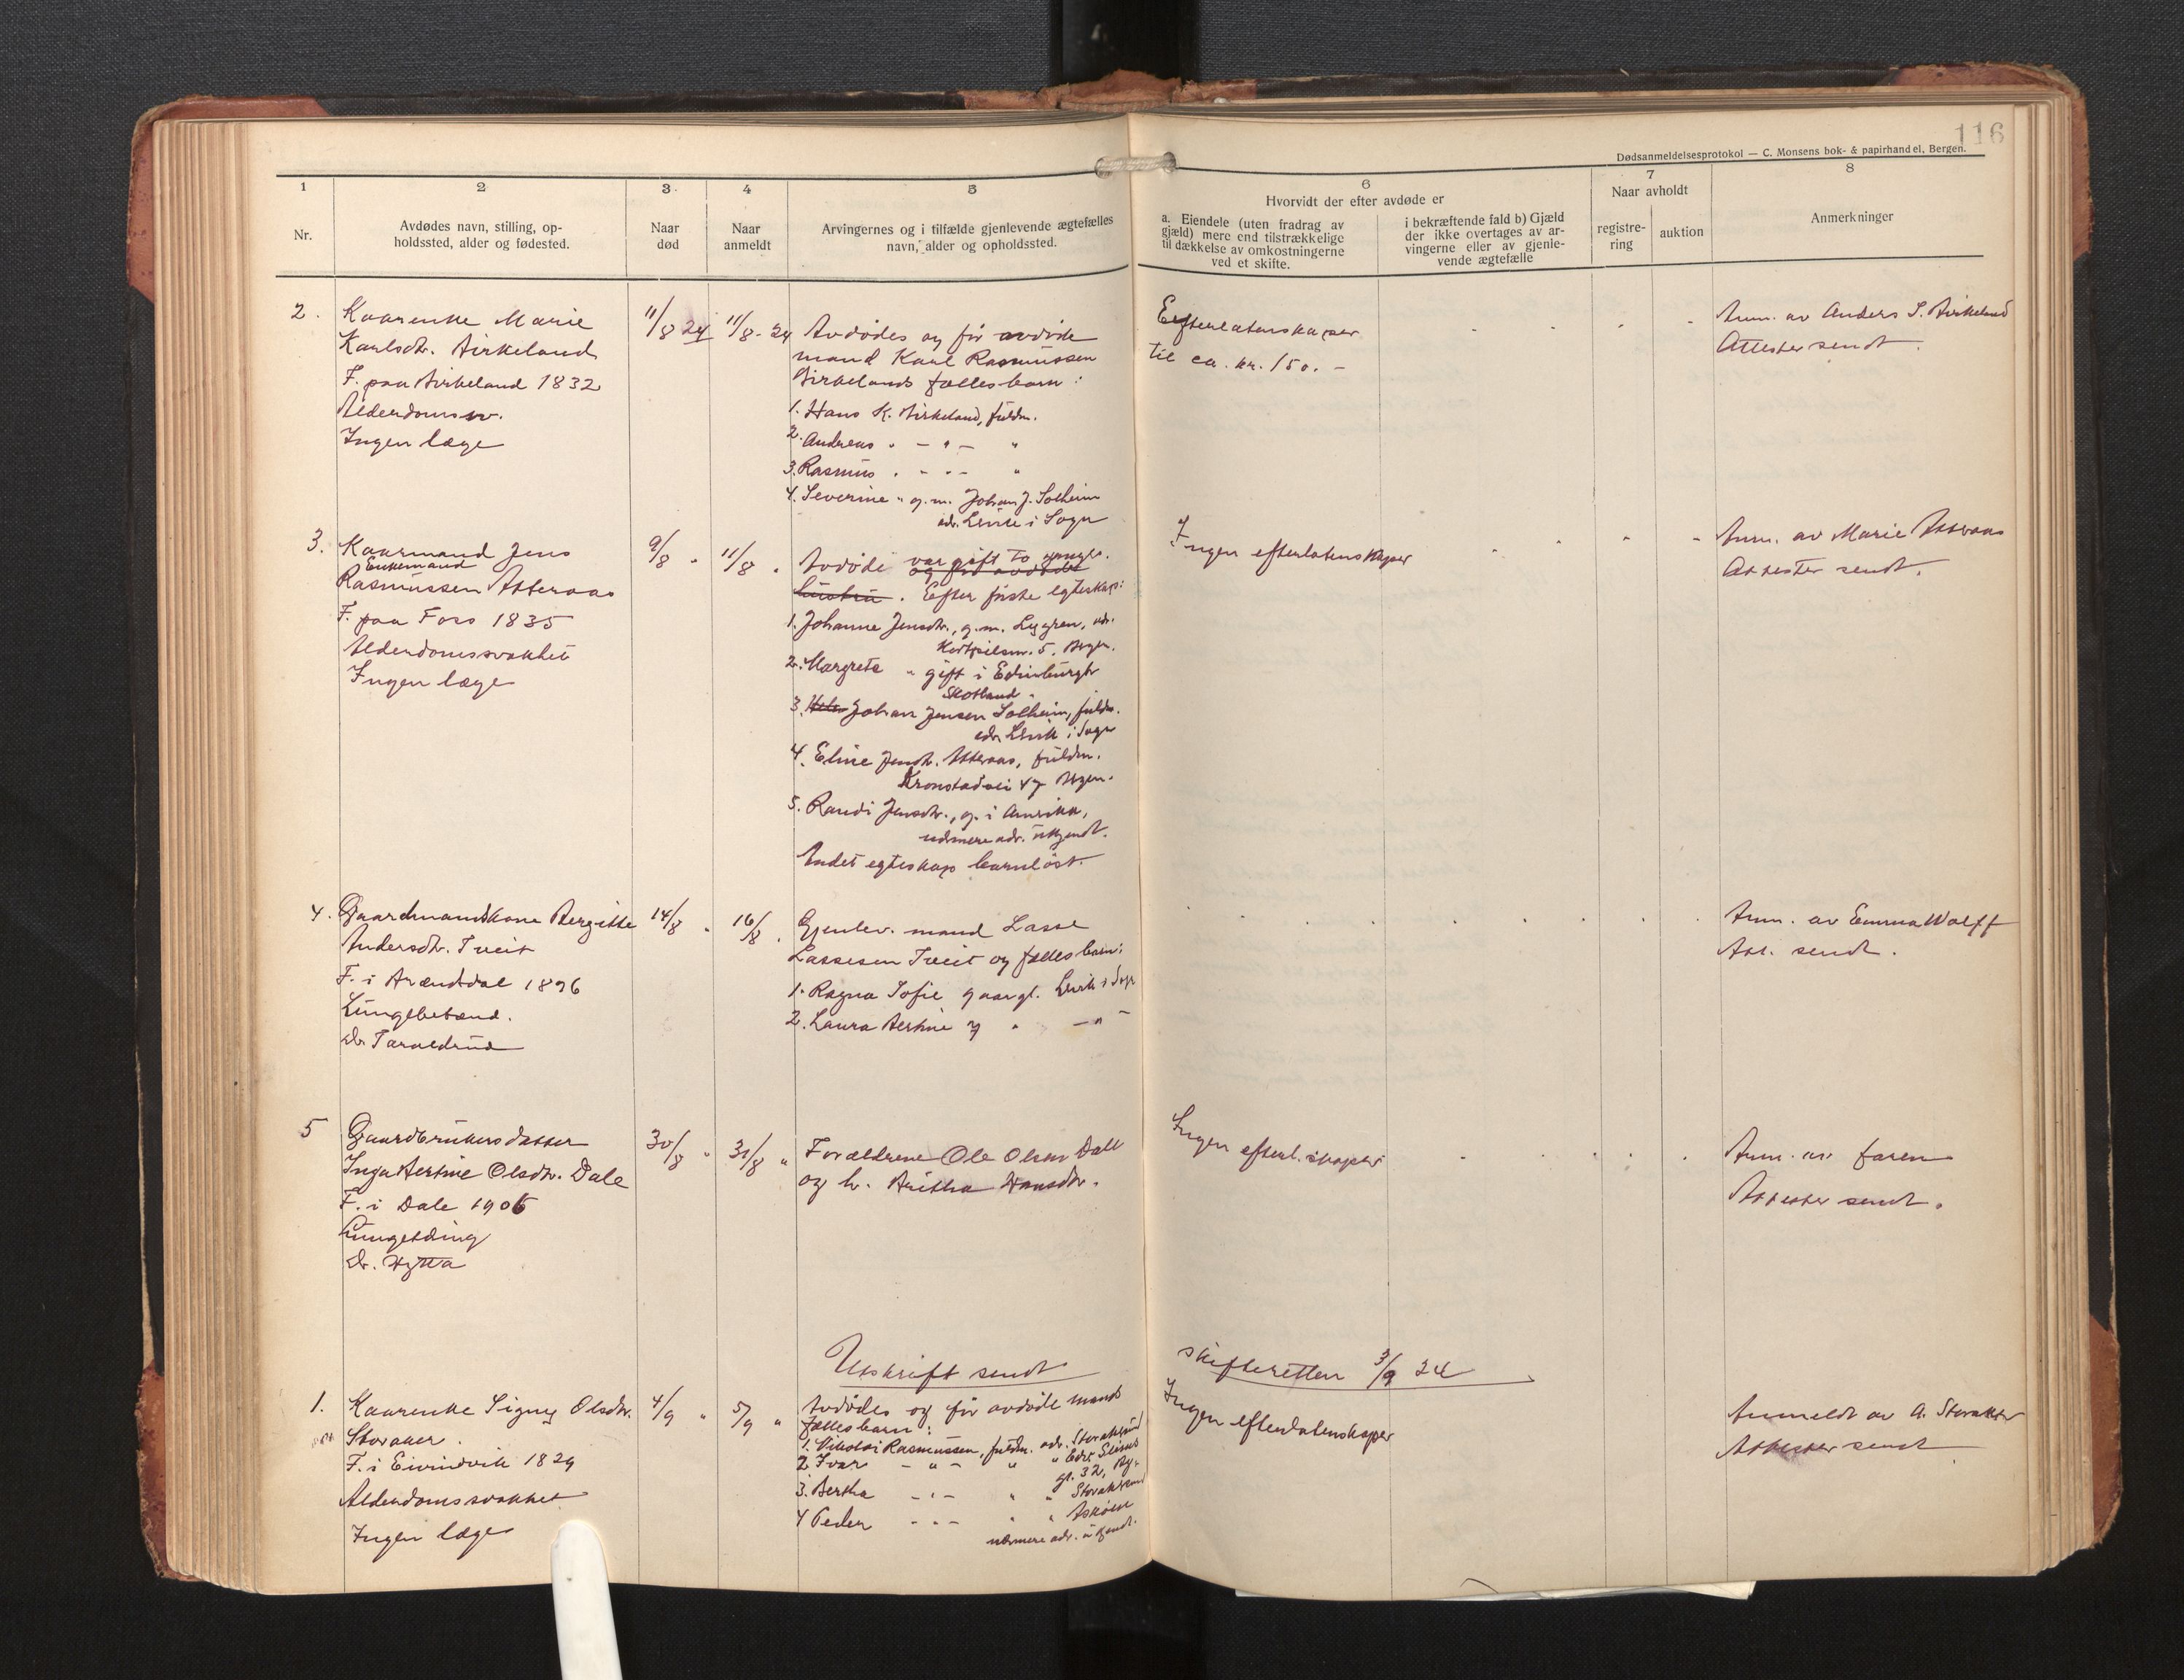 116
Dødsanmeldelsesprotokol — C. Monsens bok- & papirhandel, Bergen.
1
2
3
4
5
6
7
8
Nr.
Avdødes navn, stilling, op-
holdssted, alder og fødested.
Naar
død
Naar
anmeldt
Arvingernes og i tilfælde gjenlevende ægtefælles
navn, alder og opholdssted.
Hvorvidt der efter avdøde er
a. Eiendele (uten fradrag av
gjæld) mere end tilstrækkelige
til dækkelse av omkostningerne
ved et skifte.
i bekræftende fald b) Gjæld
der ikke overtages av ar-
vingerne eller av gjenle-
vende ægtefælle
Naar avholdt
registre-
ring
auktion
Anmerkninger
2.
Kaarenke Marie
Karlsdtr. Birkeland
F. paa Birkeland 1832
Alderdomssv.
Ingen læge
11/8 24
11/8 - 24
Avdødes og før avdøde
mand Karl Rasmussen
Birkelands fællesbarn:
1. Hans K. Birkeland, fuldm.
2. Andreas " - " - "
3. Rasmus " - " - "
4. Severine " g.m. Johan J. Solheim
adr. Leirvik i Sogn
Efterlatenskaper
til ca. kr. 150. -
Anm. av Anders S. Birkeland
Attester sendt.
3.
Kaarmand Jens
Enkemand
Rasmussen Atteraas
F. paa Foss 1835
Alderdomssvakhet
Ingen læge
9/8 "
11/8 "
Avdøde var gift to ganger.
og før avdøde
hustru. Efter første egteskap:
1. Johanne Jensdtr., g.m. Lygren, adr.
5, Bergen.
2. Margrete " gift i Edinburgh
Skotland
3. Johan Jensen Solheim, fuldm.
adr. Leirvik i Sogn
4. Eline Jensdtr. Atteraas, fuldm.
Kronstadvei 47 Bergen.
5. Randi Jensdtr., g. i Amerika,
nærmere adr. ukjendt.
Andet egteskap barnløst.
Ingen efterlatenskaper
Anm. av Marie Atteraas
Attester sendt.
4.
Gaardmandskone Bergitte
Andersdtr. Tveit
F. i Brændsdal 1896
Lungebetænd.
Dr. Taraldrud
14/8 "
16/8 "
Gjenlev. mand Lasse
Lassesen Tveit og fællesbarn:
1. Ragna Sofie 9 aar gl. Leirvik i Sogn
2. Laura Bertine 7 " - " -
Anm. av Emma Wolff
Att. sendt.
5
Gaardbrukersdatter
Inga Bertine Olsdtr. Dale
F. i Dale 1906
Lungetæring
Dr. Hytta
30/8 "
31/8 "
Forældrene Ole Olsen Dale
og h. Britha Hansdtr.
Ingen efterl.skaper
Anm. av faren
Attester sendt.
Utskrift sendt skifteretten 3/9 24
1.
Kaarenke Signy Olsdtr.
Storaker.
F. i Eivindvik 1829
Alderdomssvakhet
Ingen læge
4/9 "
5/9 "
Avdødes og før avdøde mands
fællesbarn:
1. Nikolai Rasmussen, fuldm. adr. Storakersund
2. Ivar - " - " "
gt. 32, Bg.
3. Bertha - " - " " Storakersund
4 Peder - " - " " Askøen
nærmere adr. ukjendt.
Ingen efterlatenskaper
Anmeldt av A. Storaker
Attester sendt